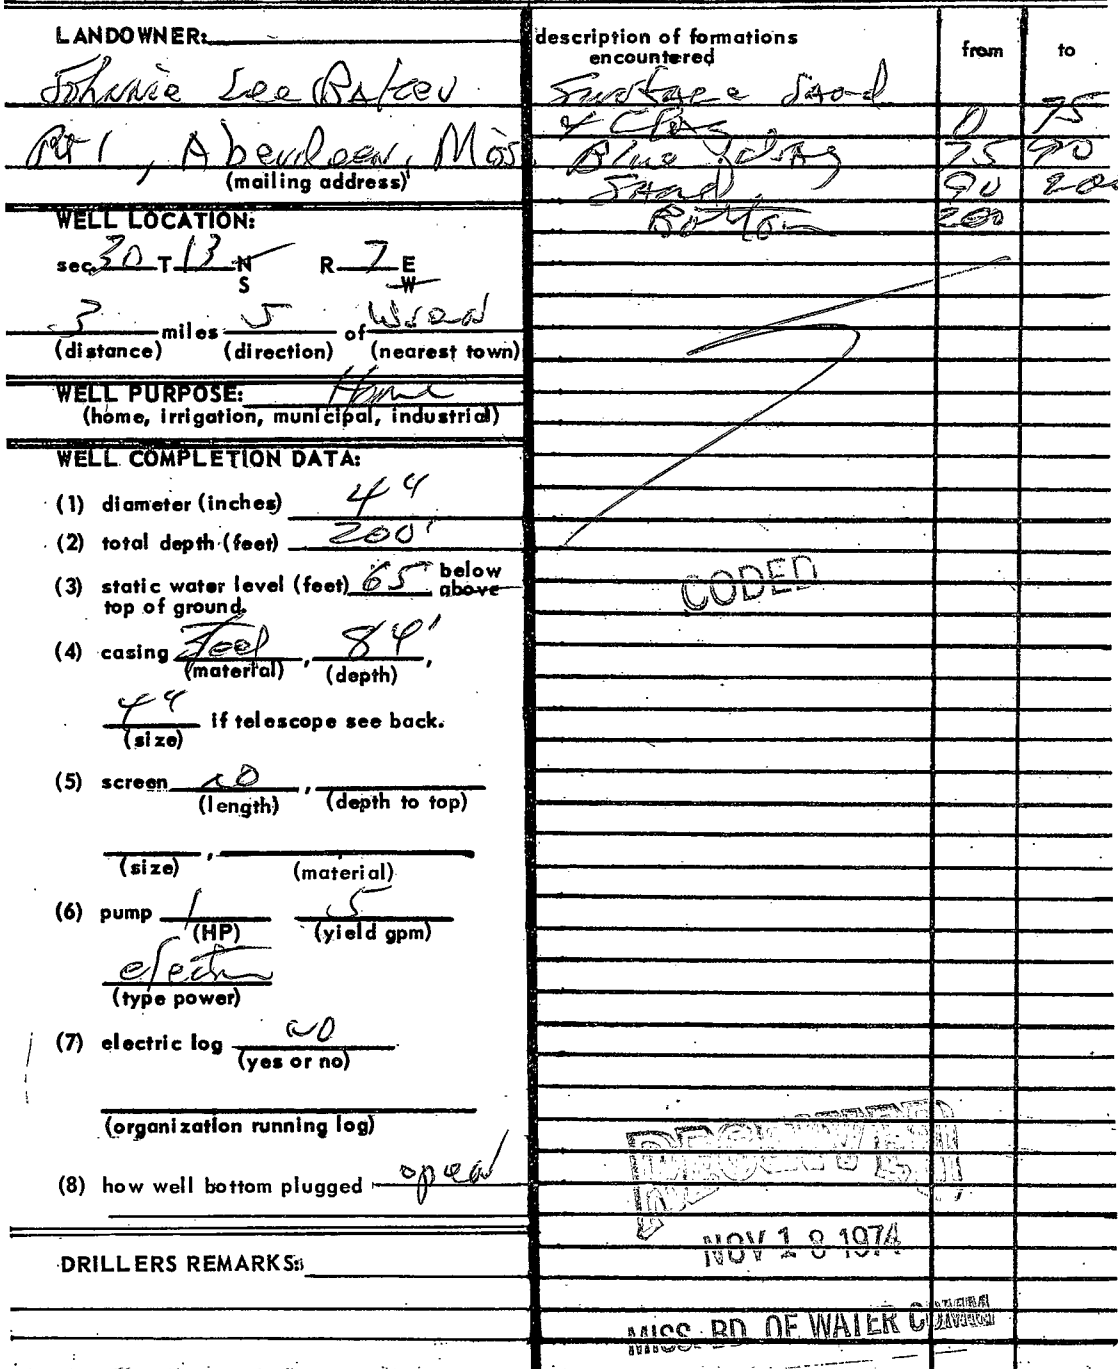 LANDOWNER:
Johnnie Lee Baker
Rt 1, Aberdeen, Miss.
(mailing address)
WELL LOCATION:
sec. 30 T 13 N R 7 E
S W
3 miles S of Wren
(distance) (direction) (nearest town)
WELL PURPOSE: Home
(home, irrigation, municipal, industrial)
WELL COMPLETION DATA:
(1) diameter (inches) 4"
(2) total depth (feet) 200'
(3) static water level (feet) 65 below
above
top of ground.
(4) casing Steel, 84',
(material) (depth)
4" if telescope see back.
(size)
(5) screen no,
(length) (depth to top)
,
(size) (material)
(6) pump 1 5
(HP) (yield gpm)
electric
(type power)
(7) electric log no
(yes or no)
(organization running log)
(8) how well bottom plugged open
DRILLERS REMARKS:
description of formations
encountered from to
Surface Sand
& Clay 0 75
Blue Clay 75 90
Sand 90 200
Bottom 200
CODED
RECEIVED
NOV 18 1974
MISS. BD. OF WATER COMM